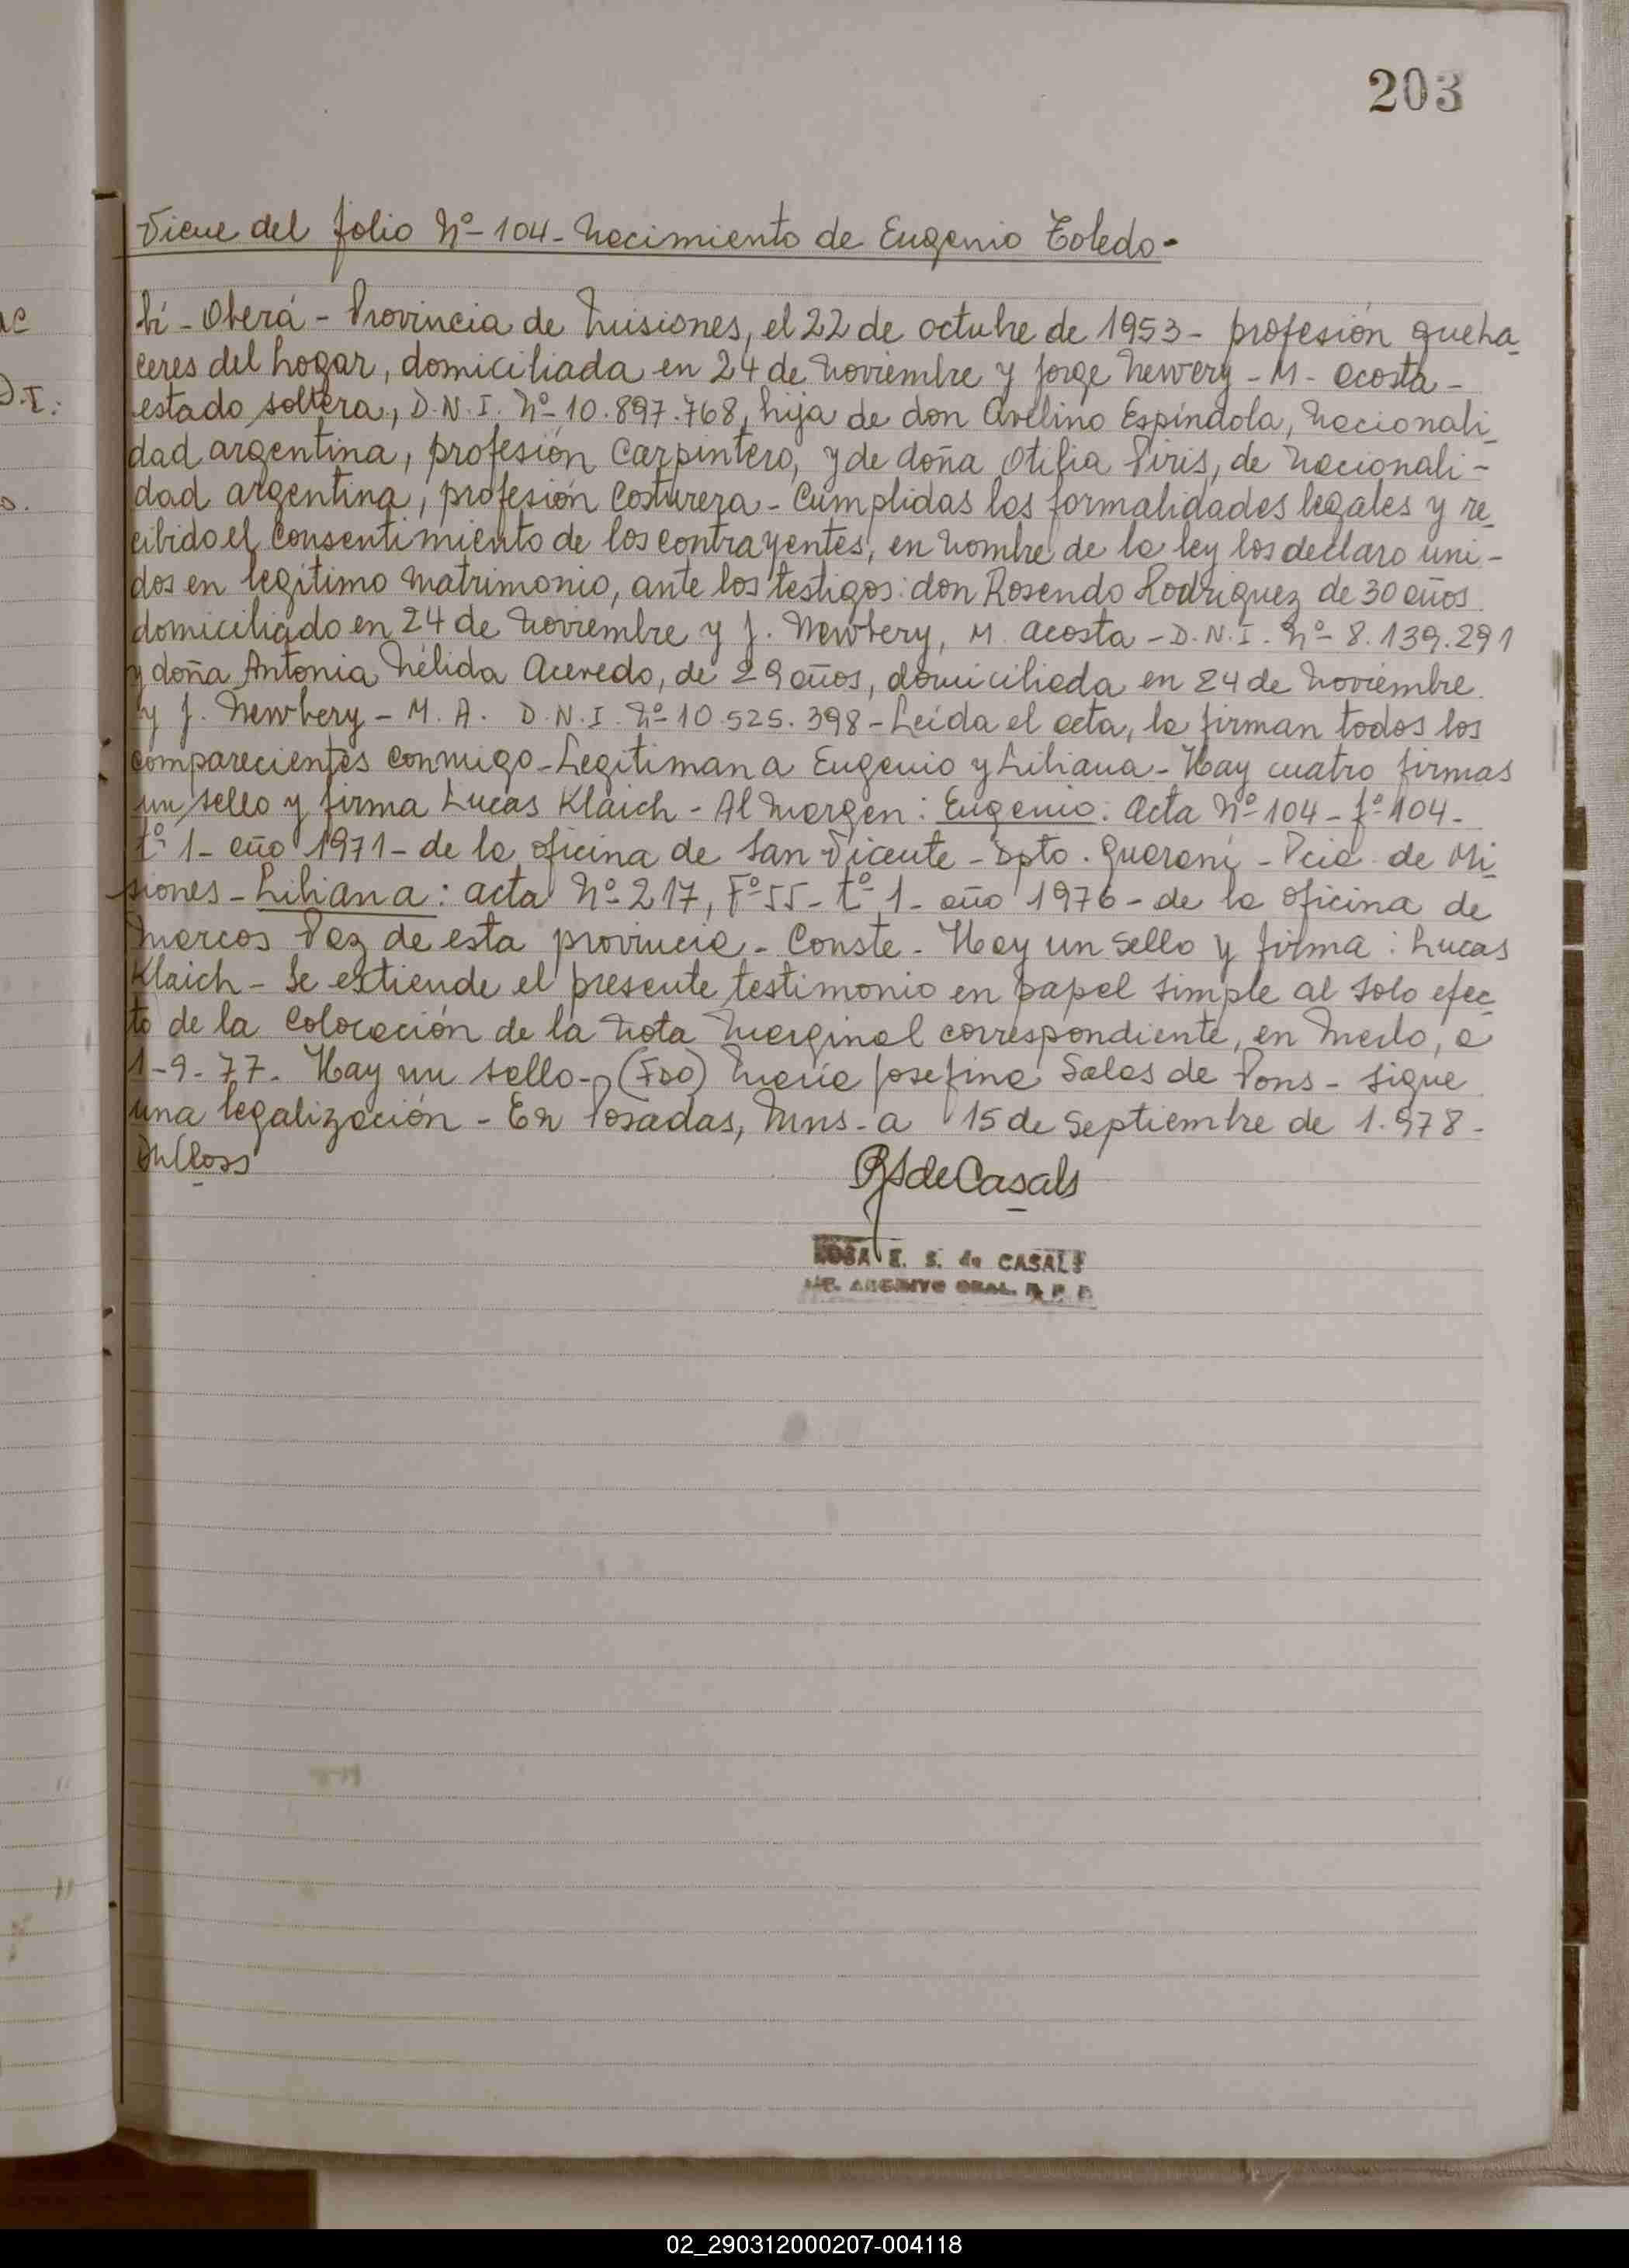 203
Viene del folio Nº 104 - Nacimiento de Eugenio Toledo -
bí - Oberá - Provincia de Misiones, el 22 de octubre de 1953 - profesión queha-
ceres del hogar, domiciliada en 24 de Noviembre y Jorge Newery - M - Acosta -
estado soltera, D.N.I. Nº 10.897.768, hija de don Avelino Espíndola, nacionali-
dad argentina, profesión Carpintero, y de doña Otilia Piris, de nacionali-
dad argentina, profesión Costurera - Cumplidas las formalidades legales y re-
cibido el consentimiento de los contrayentes, en nombre de la ley los declaro uni-
dos en legítimo matrimonio, ante los testigos: don Rosendo Rodriguez de 30 años
domiciliado en 24 de Noviembre y J. Newbery, M. Acosta - D.N.I. Nº 8.139.291
y doña Antonia Nélida Acevedo, de 29 años, domiciliada en 24 de Noviembre
y J. Newbery - M. A. D.N.I. Nº 10.525.398 - Leída el acta, la firman todos los
comparecientes conmigo - Legitiman a Eugenio y Liliana - Hay cuatro firmas
un sello y firma Lucas Klaich - Al margen: Eugenio: Acta Nº 104 - fº 104 -
tº 1 - año 1971 - de la oficina de San Vicente - Dpto. Guaraní - Pcia. de Mi-
siones - Liliana: acta Nº 217, Fº 55 - tº 1 - año 1976 - de la oficina de
Marcos Paz de esta provincia - Conste - Hay un sello y firma: Lucas
Klaich - Se extiende el presente testimonio en papel simple al solo efec-
to de la colocación de la nota marginal correspondiente, en Merlo, a
1-9-77. Hay un sello - (FDO) María Josefina Salas de Pons - Sigue
una legalización - En Posadas, Mns - a 15 de Septiembre de 1.978 -
RSdeCasals
ROSA E. S. de CASALS
ARCHIVO GRAL. R. P. P.
D.I:
02_290312000207-004118